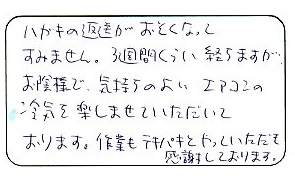 ハガキの返送が おそくなって
すみません。3週間くらい 経ちますが、
お陰様で、気持ちのよい エアコンの
冷気を楽しませていただいて
おります。作業もテキパキとやっていただき
感謝しております。